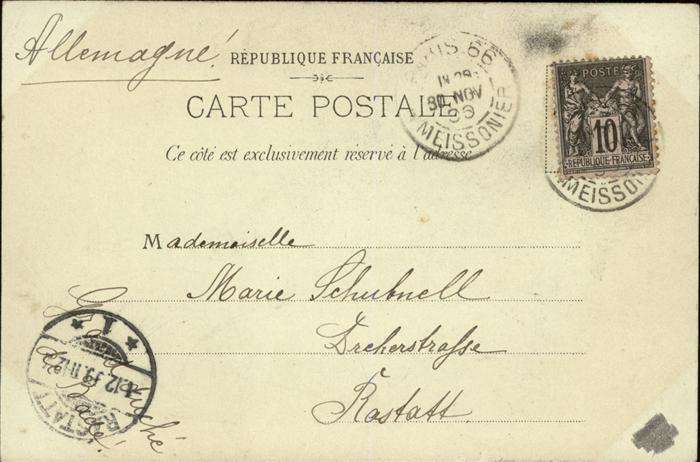 Allemagne!
RÉPUBLIQUE FRANÇAISE
CARTE POSTALE
Ce côté est exclusivement réservé à l'adresse
PARIS 66
30 NOV
99
MEISSONIER
POSTE
10
RÉPUBLIQUE FRANÇAISE
MEISSON
Mademoiselle
Marie Schubnell
Dreherstrasse
Rastatt.
Grand Duché
de Bade!
* 1 *